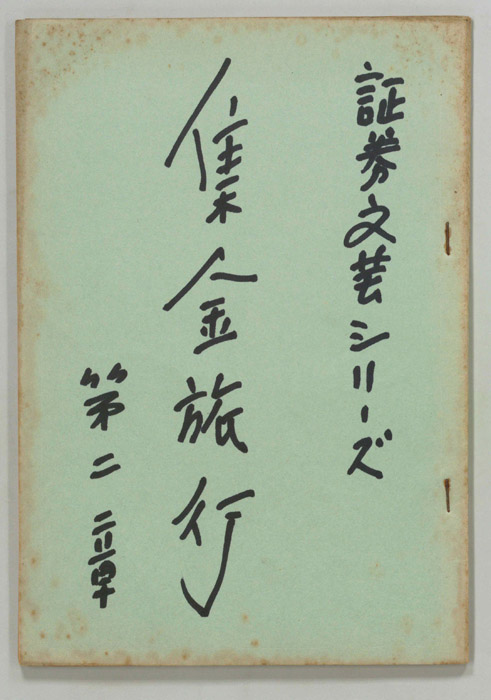 証券文芸シリーズ
集金旅行
第二章